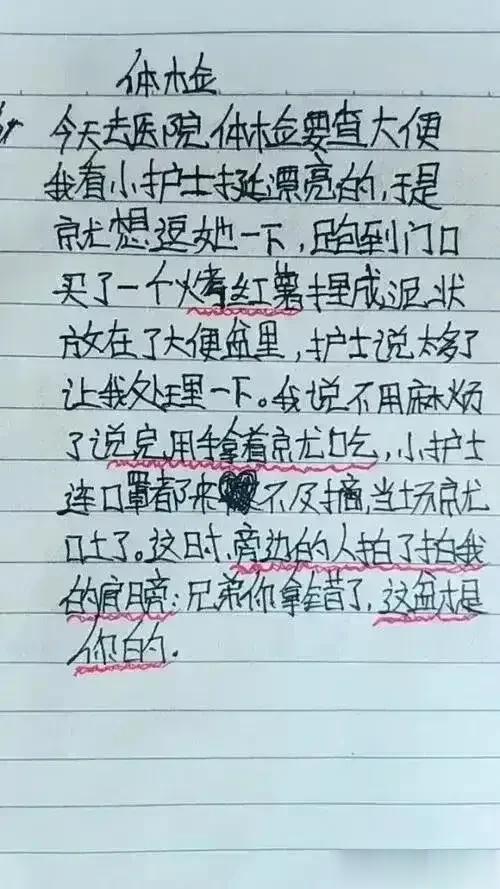 体检
今天去医院体检要查大便
我看小护士挺漂亮的,于是
就想逗她一下,跑到门口
买了一个烤红薯捏成泥状
放在了大便盆里,护士说太多了
让我处理一下。我说不用麻烦
了说完用手拿着就吃,小护士
连口罩都来不及摘,当场就
吐了。这时,旁边的人拍了拍我
的肩膀:兄弟你拿错了,这盆才是
你的.